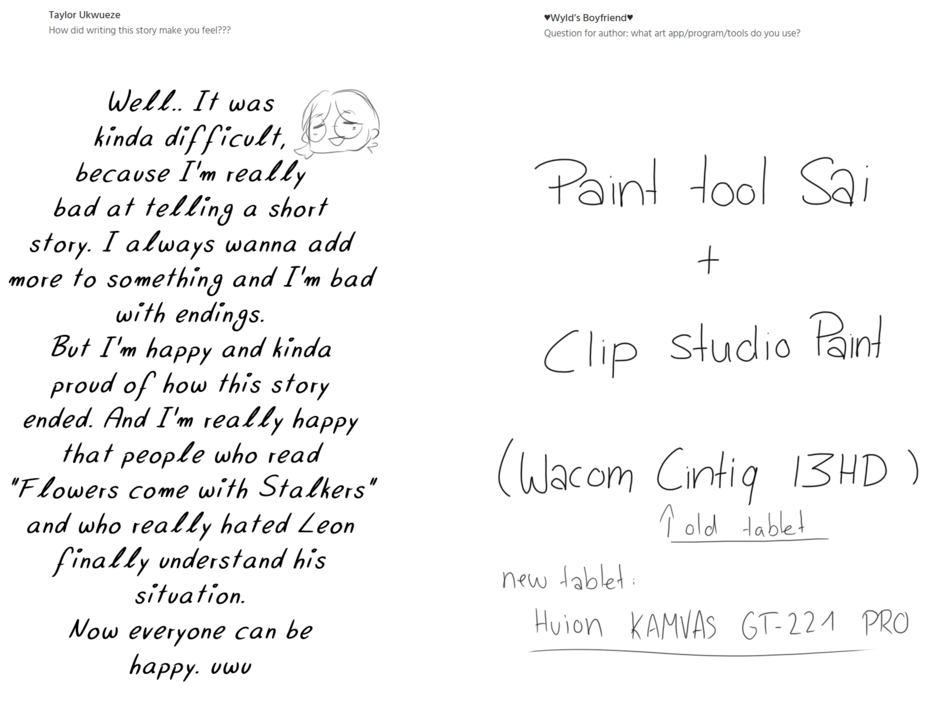 Taylor Ukwueze
How did writing this story make you feel???
Well.. It was
kinda difficult,
because I'm really
bad at telling a short
story. I always wanna add
more to something and I'm bad
with endings.
But I'm happy and kinda
proud of how this story
ended. And I'm really happy
that people who read
"Flowers come with Stalkers"
and who really hated Leon
finally understand his
situation.
Now everyone can be
happy. uwu
♥Wyld's Boyfriend♥
Question for author: what art app/program/tools do you use?
Paint tool Sai
+
Clip studio Paint
(Wacom Cintiq 13HD)
↑ old tablet
new tablet:
Huion KAMVAS GT-221 PRO